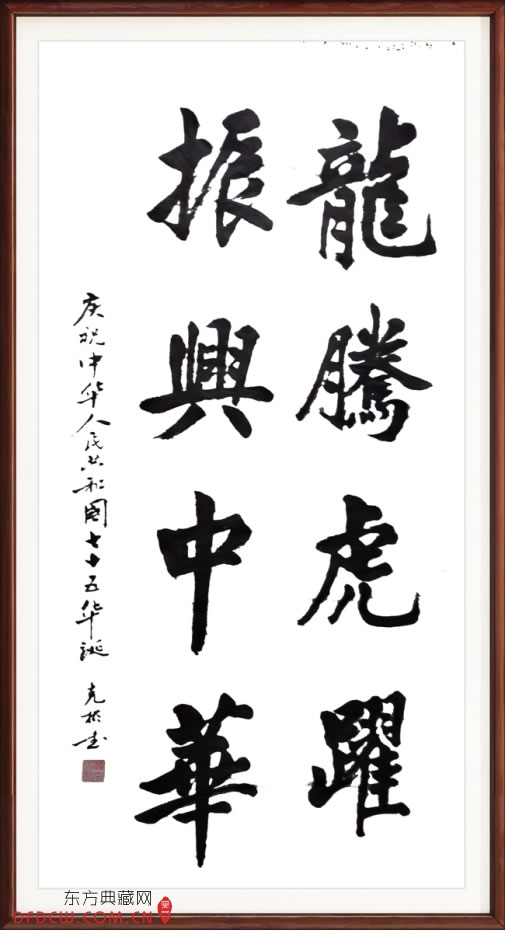 龍騰虎躍
振興中華
庆祝中华人民共和國七十五华诞 克 书
东方典藏网
DFDCW.COM.CN